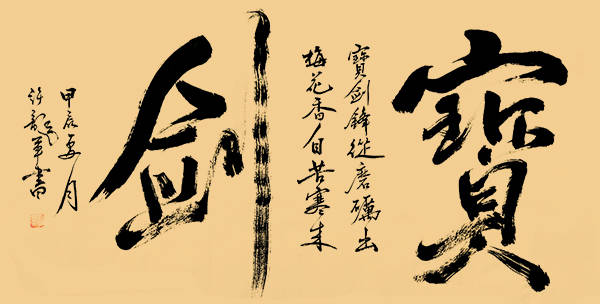 寶
寶劍鋒從磨礪出
梅花香自苦寒來
劍
甲辰夏月
書